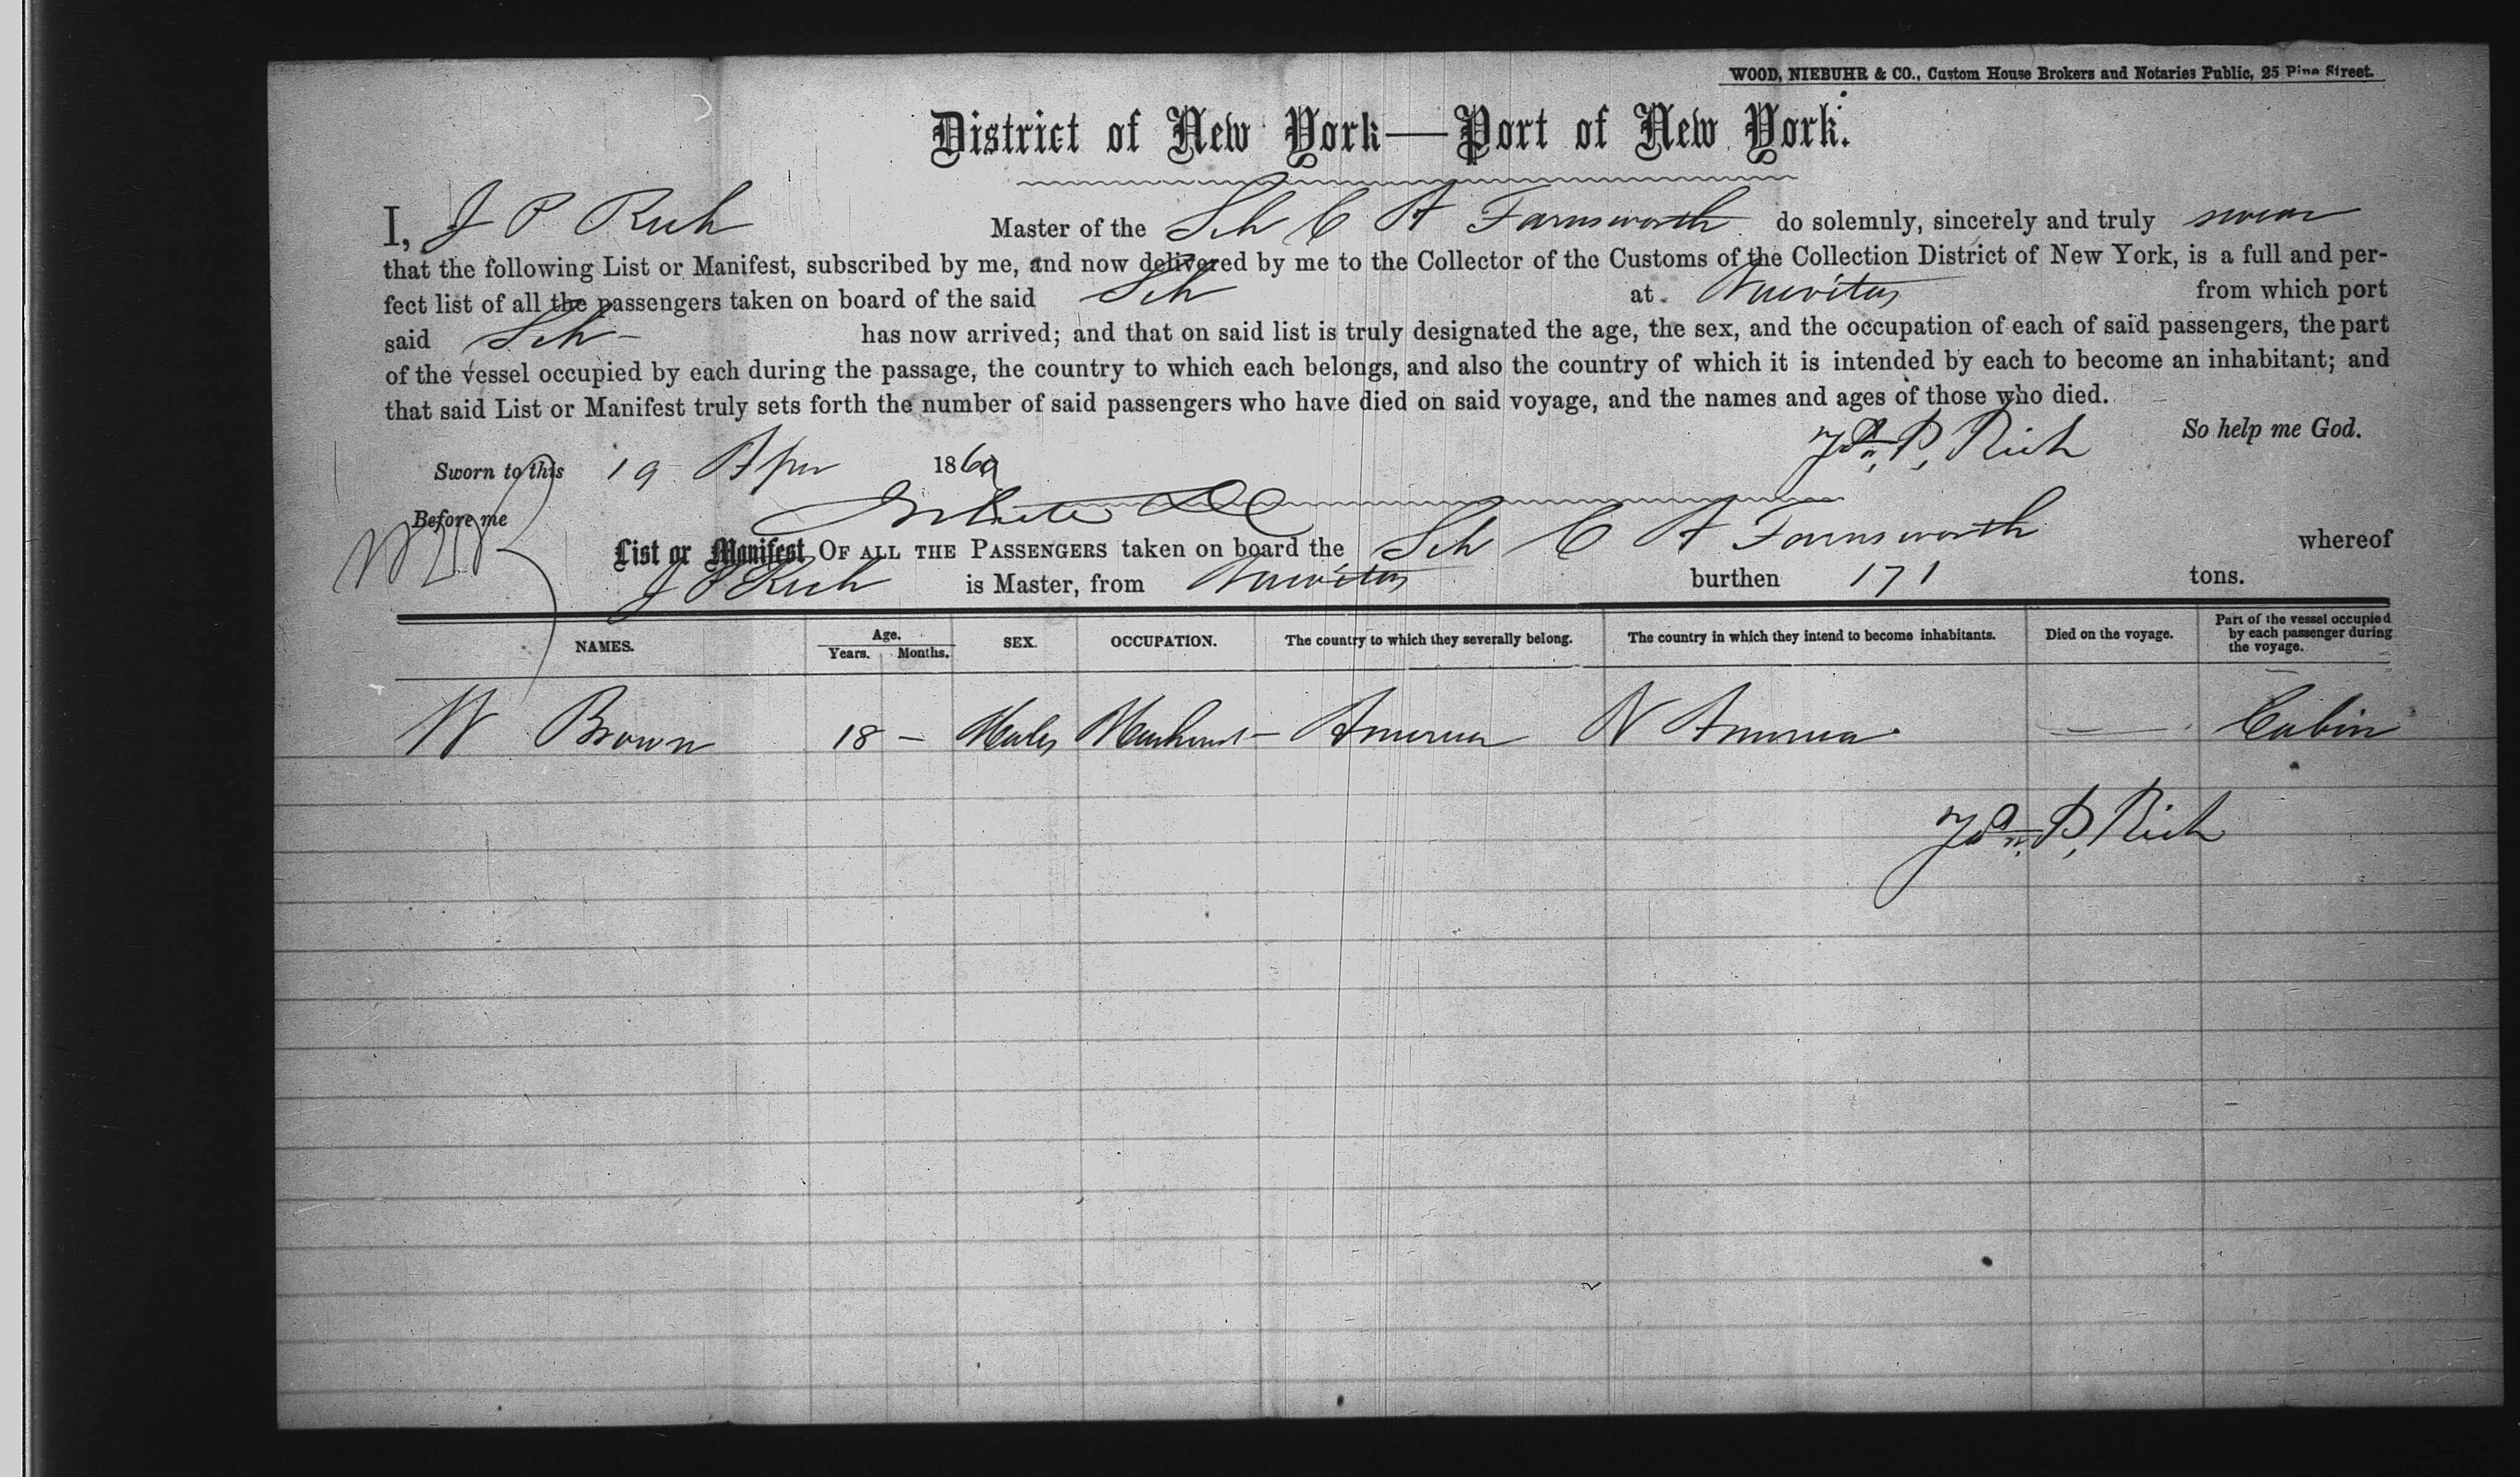 WOOD, NIEBUHR & CO., Custom House Brokers and Notaries Public, 25 Pine Street.
District of New York—Port of New York.
I, J P Rich Master of the Sch C A Farnsworth do solemnly, sincerely and truly swear
that the following List or Manifest, subscribed by me, and now delivered by me to the Collector of the Customs of the Collection District of New York, is a full and per-
fect list of all the passengers taken on board of the said Sch at Nuevitas from which port
said Sch has now arrived; and that on said list is truly designated the age, the sex, and the occupation of each of said passengers, the part
of the vessel occupied by each during the passage, the country to which each belongs, and also the country of which it is intended by each to become an inhabitant; and
that said List or Manifest truly sets forth the number of said passengers who have died on said voyage, and the names and ages of those who died.
So help me God.
Jno. P. Rich
Sworn to this 19 Apr 1869
Before me
List or Manifest OF ALL THE PASSENGERS taken on board the Sch C A Farnsworth whereof
J P Rich is Master, from Nuevitas burthen 171 tons.
NAMES. Age. Years. Months. SEX. OCCUPATION. The country to which they severally belong. The country in which they intend to become inhabitants. Died on the voyage. Part of the vessel occupied by each passenger during the voyage.
W Brown 18 – Male Merchant America N America — Cabin
Jno. P. Rich